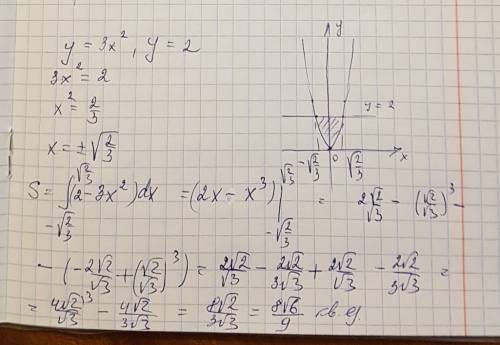 y = 3x², y = 2
3x² = 2
x² = 2/3
x = ±√(2/3)
y
y = 2
-√(2/3) 0 √(2/3) x
S = ∫_{-√(2/3)}^{√(2/3)} (2-3x²)dx = (2x - x³)|_{-√(2/3)}^{√(2/3)} = 2√2/√3 - (√2/√3)³ -
- (-2√2/√3 + (√2/√3)³) = 2√2/√3 - 2√2/3√3 + 2√2/√3 - 2√2/3√3 =
= 4√2/√3 ³⁾ - 4√2/3√3 = 8√2/3√3 = 8√6/9 кв.ед.